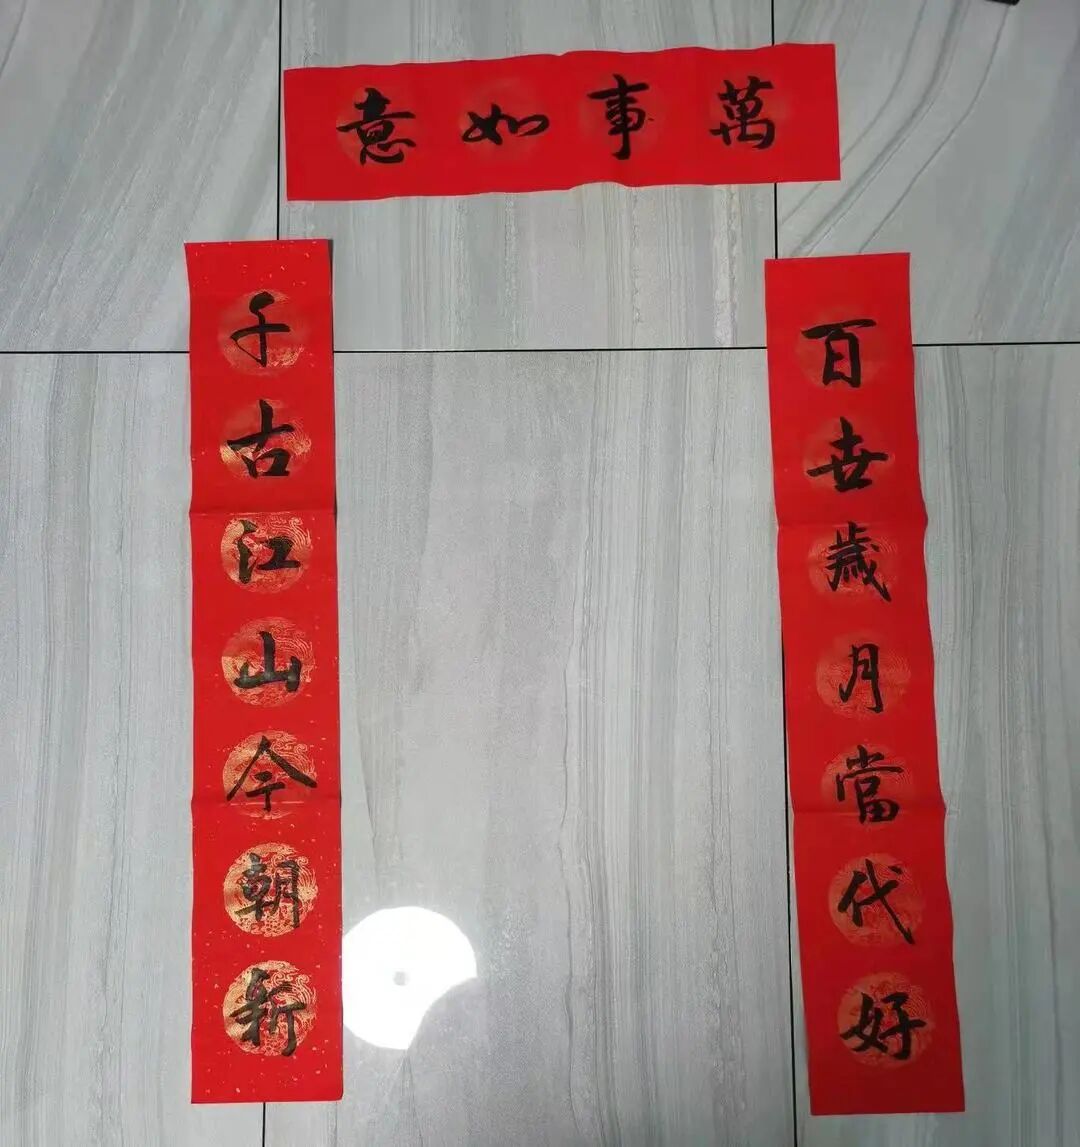 萬事如意
百世歲月當代好
千古江山今朝新